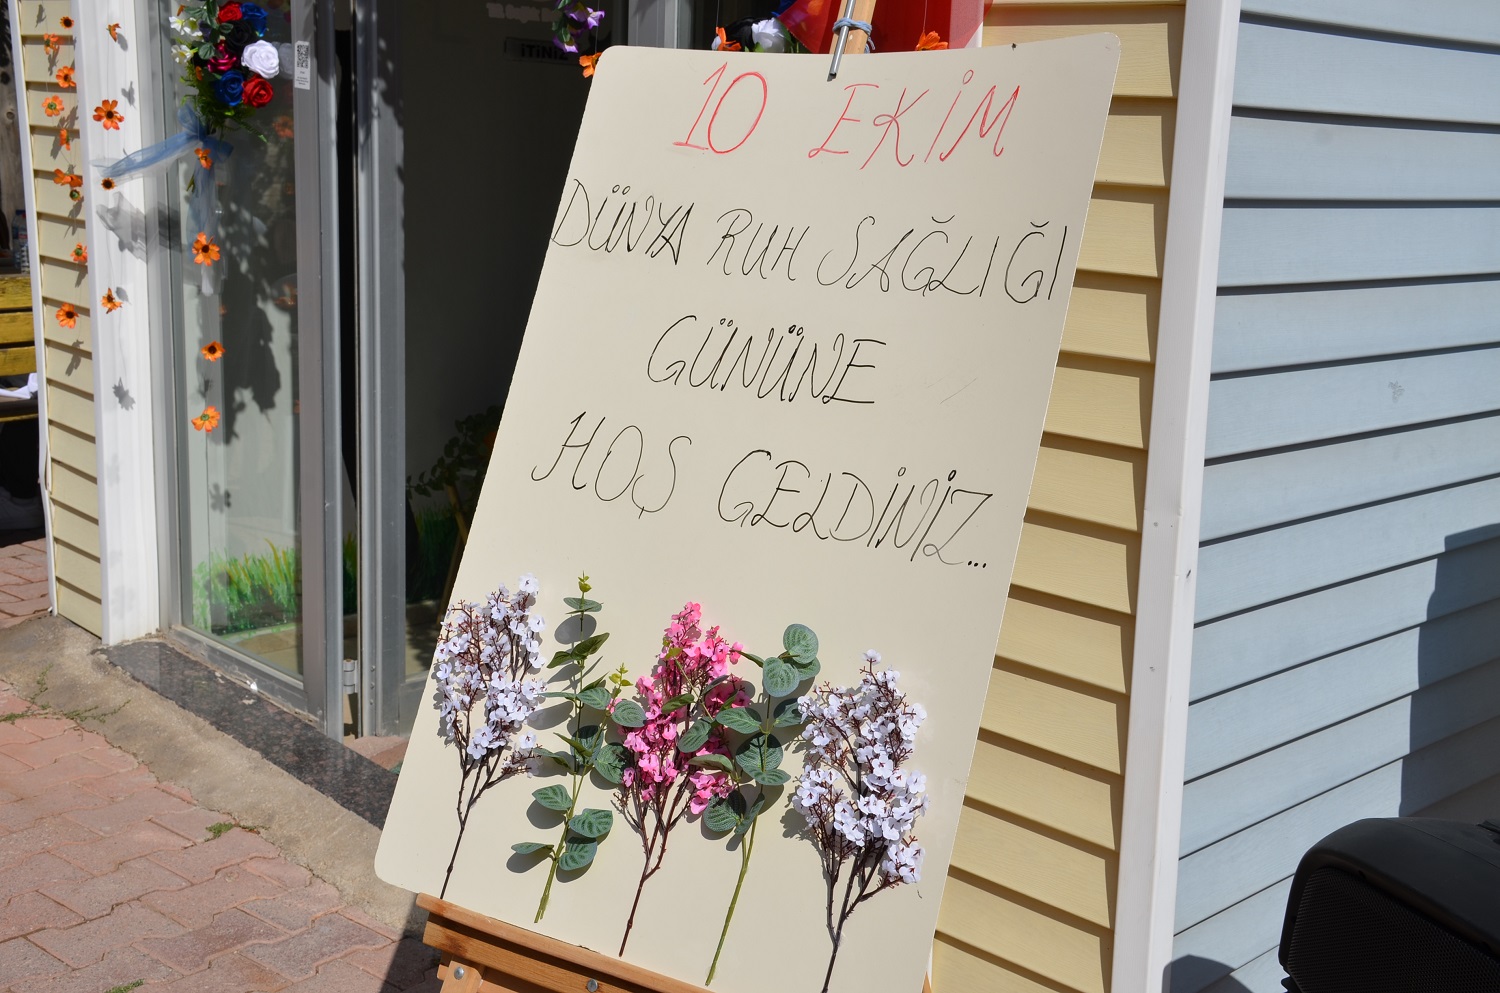 10 EKİM
DÜNYA RUH SAĞLIĞI
GÜNÜNE
HOŞ GELDİNİZ...